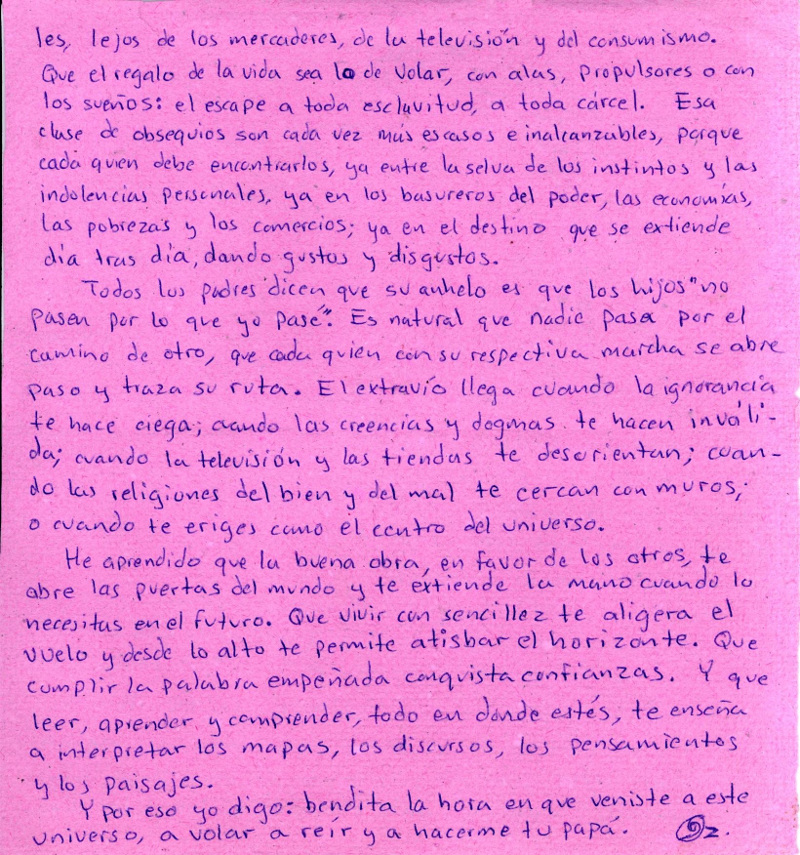 les, lejos de los mercaderes, de la televisión y del consumismo.
Que el regalo de la vida sea lo de volar, con alas, propulsores o con
los sueños: el escape a toda esclavitud, a toda cárcel. Esa
clase de obsequios son cada vez más escasos e inalcanzables, porque
cada quien debe encontrarlos, ya entre la selva de los instintos y las
indolencias personales, ya en los basureros del poder, las economías,
las pobrezas y los comercios; ya en el destino que se extiende
día tras día, dando gustos y disgustos.
Todos los padres dicen que su anhelo es que los hijos "no
pasen por lo que yo pasé". Es natural que nadie pasa por el
camino de otro, que cada quien con su respectiva marcha se abre
paso y traza su ruta. El extravío llega cuando la ignorancia
te hace ciega; cuando las creencias y dogmas te hacen invali-
da; cuando la televisión y las tiendas te desorientan; cuan-
do las religiones del bien y del mal te cercan con muros;
o cuando te eriges como el centro del universo.
He aprendido que la buena obra, en favor de los otros, te
abre las puertas del mundo y te extiende la mano cuando lo
necesitas en el futuro. Que vivir con sencillez te aligera el
vuelo y desde lo alto te permite atisbar el horizonte. Que
cumplir la palabra empeñada conquista confianzas. Y que
leer, aprender y comprender, todo en donde estés, te enseña
a interpretar los mapas, los discursos, los pensamientos
y los paisajes.
Y por eso yo digo: bendita la hora en que veniste a este
universo, a volar a reír y a hacerme tu papá.